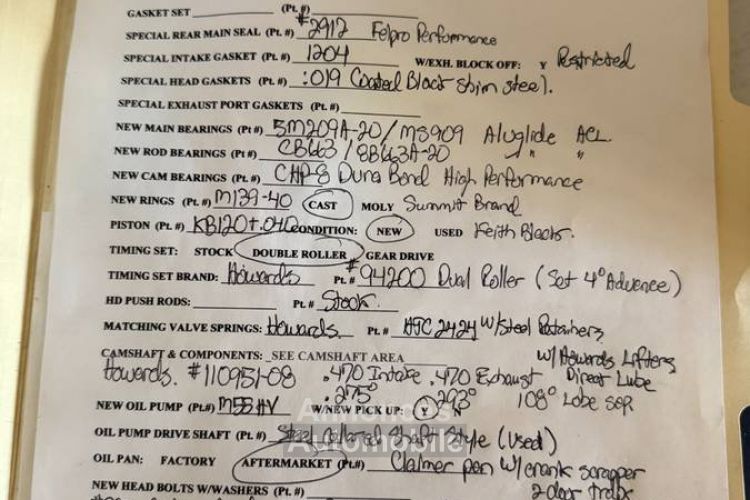 GASKET SET (Pt. #)
SPECIAL REAR MAIN SEAL (Pt. #) #2912 Felpro Performance
SPECIAL INTAKE GASKET (Pt. #) 1204 W/EXH. BLOCK OFF: Y Restricted
SPECIAL HEAD GASKETS (Pt. #) :019 Coated Black shim steel.
SPECIAL EXHAUST PORT GASKETS (Pt. #)
NEW MAIN BEARINGS (Pt #) 5M209A-20/MS909 Aluglide ACL.
NEW ROD BEARINGS (Pt #) CB663/8B663A-20 " "
NEW CAM BEARINGS (Pt #) CHP-8 Dura Bond High Performance
NEW RINGS (Pt. #) M139-40 CAST MOLY Summit Brand
PISTON (Pt. #) KB120+.040 CONDITION: NEW USED Keith Blacks.
TIMING SET: STOCK DOUBLE ROLLER GEAR DRIVE
TIMING SET BRAND: Howards Pt. # #94200 Dual Roller (Set 4° Advance)
HD PUSH RODS: Pt. # Stock.
MATCHING VALVE SPRINGS: Howards. Pt. # 2424 W/Steel Retainers
CAMSHAFT & COMPONENTS: SEE CAMSHAFT AREA W/Howards Lifters
Howards. #110951-08 .470 Intake .470 Exhaust Direct Lube
.275° 293° 108° Lobe sep.
NEW OIL PUMP (Pt.#) M55HV W/NEW PICK UP: Y N
OIL PUMP DRIVE SHAFT (Pt. #) Steel Collared Shaft Style (Used)
OIL PAN: FACTORY AFTERMARKET (Pt.#) Claimer pan W/crank scrapper
NEW HEAD BOLTS W/WASHERS (Pt. #) 2-door trap
Automobile